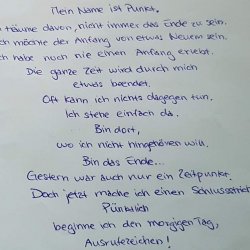 Mein Name ist Punkt.
träume davon, nicht immer das Ende zu sein.
ch möchte der Anfang von etwas Neuem sein.
ch habe noch nie einen Anfang erlebt.
Die ganze Zeit wird durch mich
etwas beendet.
Oft kann ich nichts dagegen tun.
Ich stehe einfach da.
Bin dort,
wo ich nicht hingehören will.
Bin das Ende...
Gestern war auch nur ein Zeitpunkt.
Doch jetzt mache ich einen Schlussstrich
Pünktlich
beginne ich den morgigen Tag,
Ausrufezeichen!